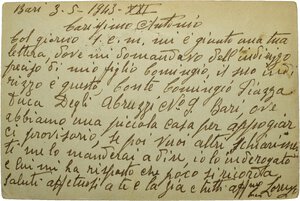 Bari 3-5-1943-XXI
Carissimo Antonio
Col giorno 1. c. m, mi è giunto una tua
lettera, dove mi domandavo dell'indirizzo
preciso di mio figlio Domingio, il suo indi
rizzo è questo, Conte Domingio Piazza
Duca Degli Abruzzi Bari, ove
abbiamo una piccola casa per appogiar
ci provisorio, se poi vuoi altri schiarimen
ti me lo manderai a dire, io lo inderogato
e lui mi ha risposto che poco si ricorda
saluti affettuosi a te e la zia e tutti